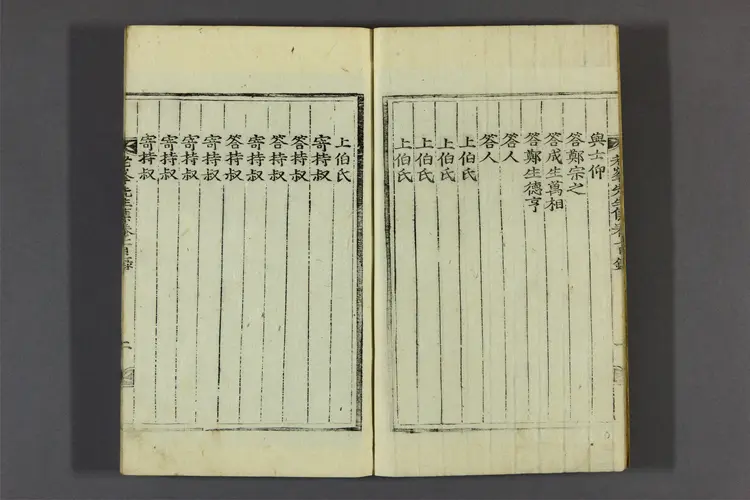 與士仰
答鄭宗之
答成生萬相
答鄭生德亨
答人
答人
上伯氏
上伯氏
上伯氏
上伯氏
上伯氏
寄持叔
答持叔
答持叔
寄持叔
答持叔
寄持叔
寄持叔
寄持叔
寄持叔